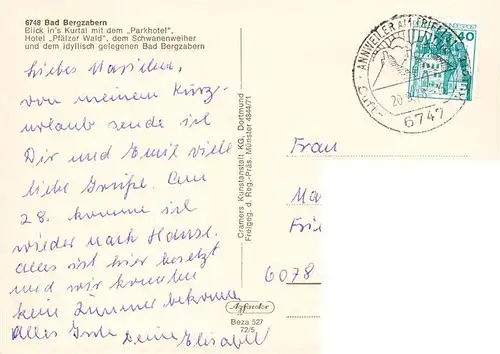 6748 Bad Bergzabern
Blick in's Kurtal mit dem „Parkhotel",
Hotel „Pfälzer Wald", dem Schwanenweiher
und dem idyllisch gelegenen Bad Bergzabern
Liebes
von meinem Kurz-
urlaub sende ich
Dir und Emil viele
liebe Grüße. Am
28. komme ich
wieder nach Hause.
Alles ist hier besetzt
und wir konnten
kein Zimmer bekomme
Alles Gute Deine Elisabeth
Cramers Kunstanstalt KG, Dortmund
Freigeg. d. Reg.-Präs. Münster 4844/71
Beza 527
72/5
ANNWEILER AM TRIFELS
6747
DEUTSCHE BUNDESPOST
40
Frau
Ma
Frie
6078